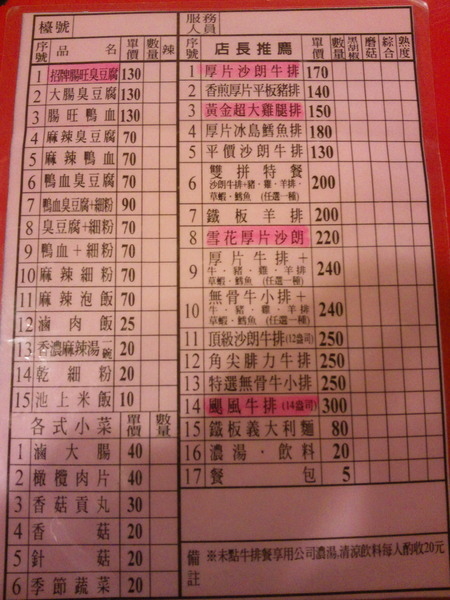 檯號
序號 品名 單價 數量 辣
1 招牌腸旺臭豆腐 130
2 大腸臭豆腐 130
3 腸旺鴨血 130
4 麻辣臭豆腐 70
5 麻辣鴨血 70
6 鴨血臭豆腐 70
7 鴨血臭豆腐+細粉 90
8 臭豆腐+細粉 70
9 鴨血+細粉 70
10 麻辣細粉 70
11 麻辣泡飯 70
12 滷肉飯 25
13 香濃麻辣湯一碗 20
14 乾細粉 20
15 池上米飯 10
各式小菜 單價 數量
1 滷大腸 40
2 橄欖肉片 40
3 香菇貢丸 30
4 香菇 20
5 針菇 20
6 季節蔬菜 20
服務人員
序號 店長推薦 單價 數量 黑胡椒 蘑菇 綜合 熟度
1 厚片沙朗牛排 170
2 香煎厚片平板豬排 140
3 黃金超大雞腿排 150
4 厚片冰島鱈魚排 180
5 平價沙朗牛排 130
6 雙拼特餐 200
沙朗牛排+豬.雞.羊排.
草蝦.鱈魚 (任選一種)
7 鐵板羊排 200
8 雪花厚片沙朗 220
9 厚片牛排+ 240
牛.豬.雞.羊排
草蝦.鱈魚 (任選一種)
10 無骨牛小排+ 240
牛.豬.雞.羊排
草蝦.鱈魚 (任選一種)
11 頂級沙朗牛排(12盎司) 250
12 角尖腓力牛排 250
13 特選無骨牛小排 250
14 颶風牛排(14盎司) 300
15 鐵板義大利麵 80
16 濃湯.飲料 20
17 餐包 5
備註 ※未點牛排餐享用公司濃湯,清涼飲料每人酌收20元